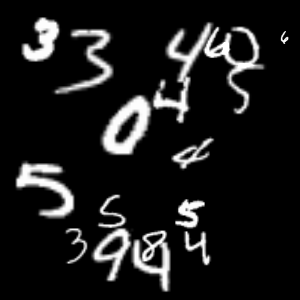 3 3 4 6 0 6
5
0 4
4
5
5 5
3 9 8 4 4